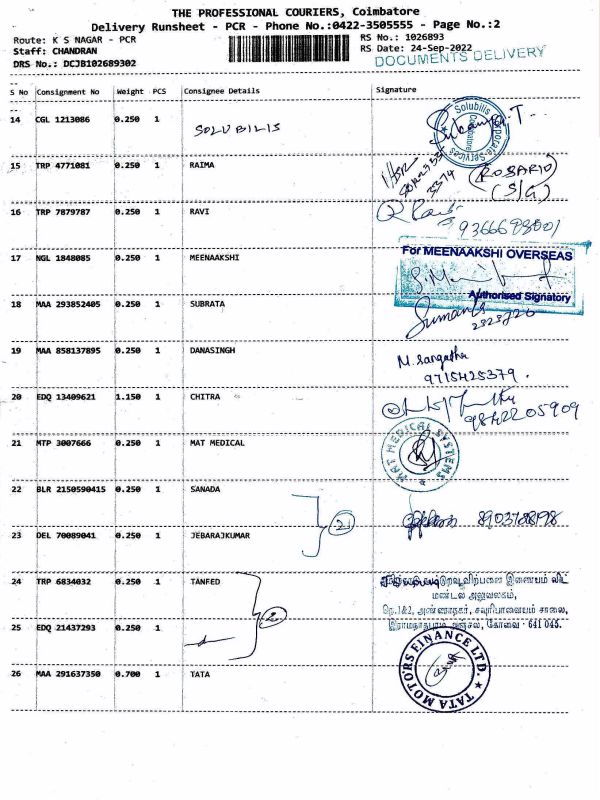 THE PROFESSIONAL COURIERS, Coimbatore
Delivery Runsheet - PCR - Phone No.:0422-3505555 - Page No.:2
Route: K S NAGAR - PCR
Staff: CHANDRAN
DRS No.: DCJB102689302
RS No.: 1026893
RS Date: 24-Sep-2022
DOCUMENTS DELIVERY
S No Consignment No Weight PCS Consignee Details Signature
14 CGL 1213086 0.250 1 SOLUBILIS
Solubilis Corporate Services
Coimbatore
15 TRP 4771081 0.250 1 RAIMA
(ROSARIO)
(S/G)
16 TRP 7879787 0.250 1 RAVI
17 NGL 1848085 0.250 1 MEENAAKSHI
For MEENAAKSHI OVERSEAS
Authorised Signatory
18 MAA 293852405 0.250 1 SUBRATA
19 MAA 858137895 0.250 1 DANASINGH
M. Sangatha
9715425379.
20 EDQ 13409621 1.150 1 CHITRA
9842205909
21 MTP 3007666 0.250 1 MAT MEDICAL
MAT MEDICAL SYSTEMS
22 BLR 2150590415 0.250 1 SANADA
23 DEL 70089041 0.250 1 JEBARAJKUMAR
24 TRP 6834032 0.250 1 TANFED
2
விற்பனை இணையம் லிட்
மண்டல அலுவலகம்,
நெ.1&2, அண்ணாநகர், சவுரிபாளையம் சாலை,
இராமநாதபுரம் அஞ்சல், கோவை - 641 045.
25 EDQ 21437293 0.250 1
26 MAA 291637350 0.700 1 TATA
TATA MOTORS FINANCE LTD.